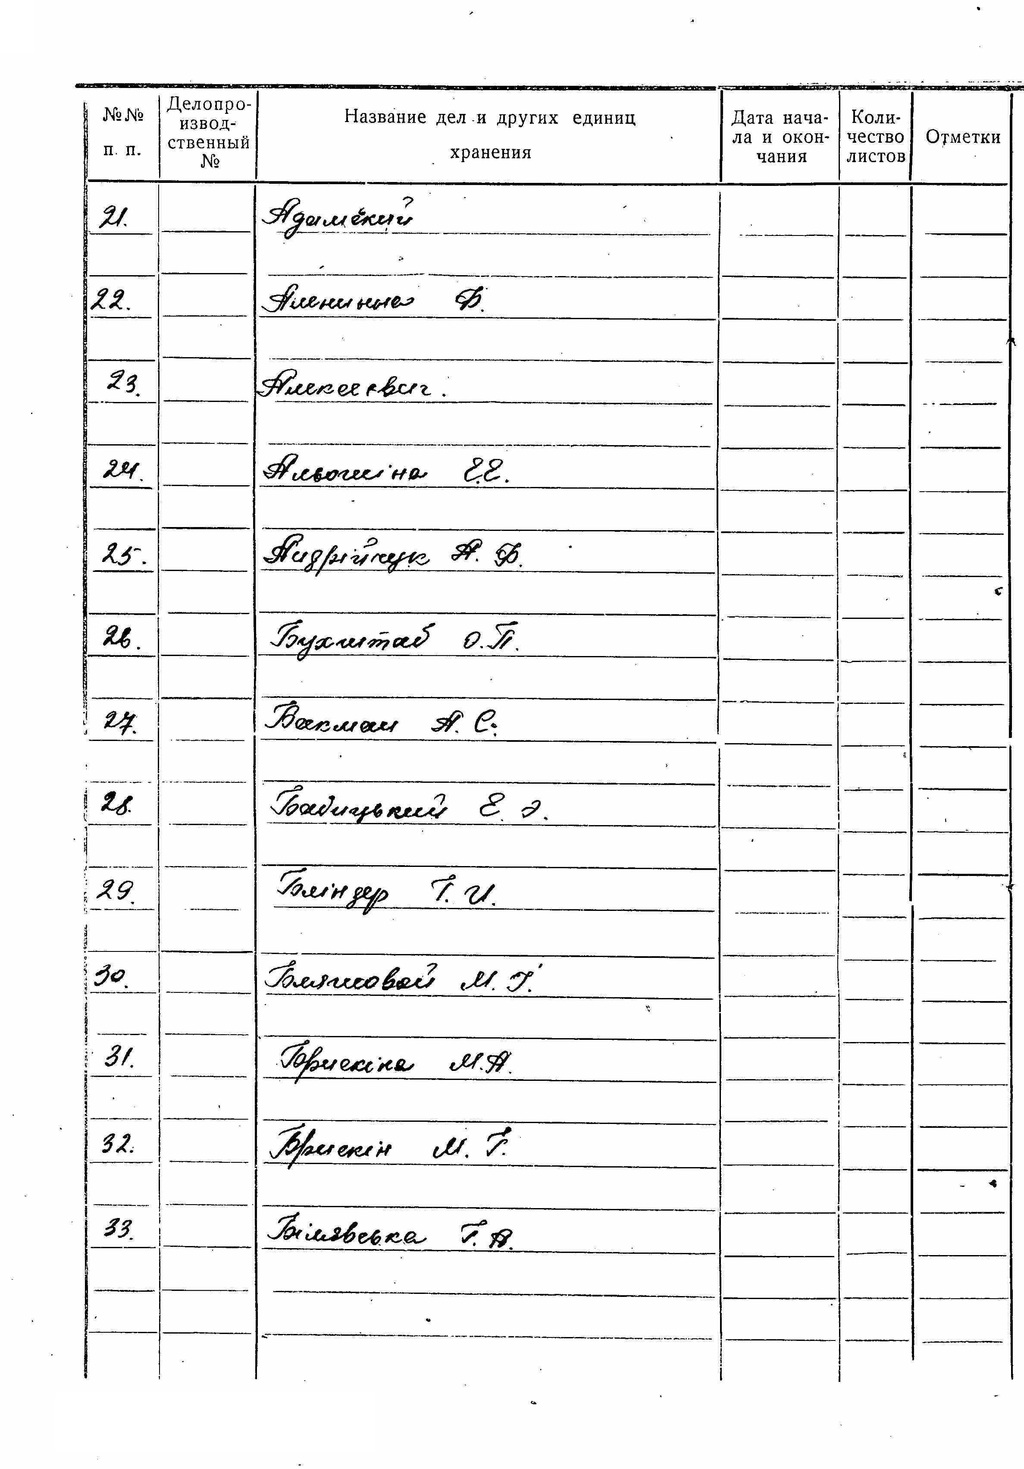 №№ п. п. Делопроизвод-ственный № Название дел и других единиц хранения Дата нача-ла и окон-чания Коли-чество листов Отметки
21. Адамский
22. Ф.
23. Алексеевич.
24. Альошіна Е.Е.
25. Андрійчук А. Ф.
26. Бухштаб О.П.
27. Вакман А. С.
28. Бабицький Е. Э.
29. Бліндер Г. И.
30. Бляшовой М. Г.
31. Брискіна М.А.
32. Брискін М. Г.
33. Білявська Г. А.